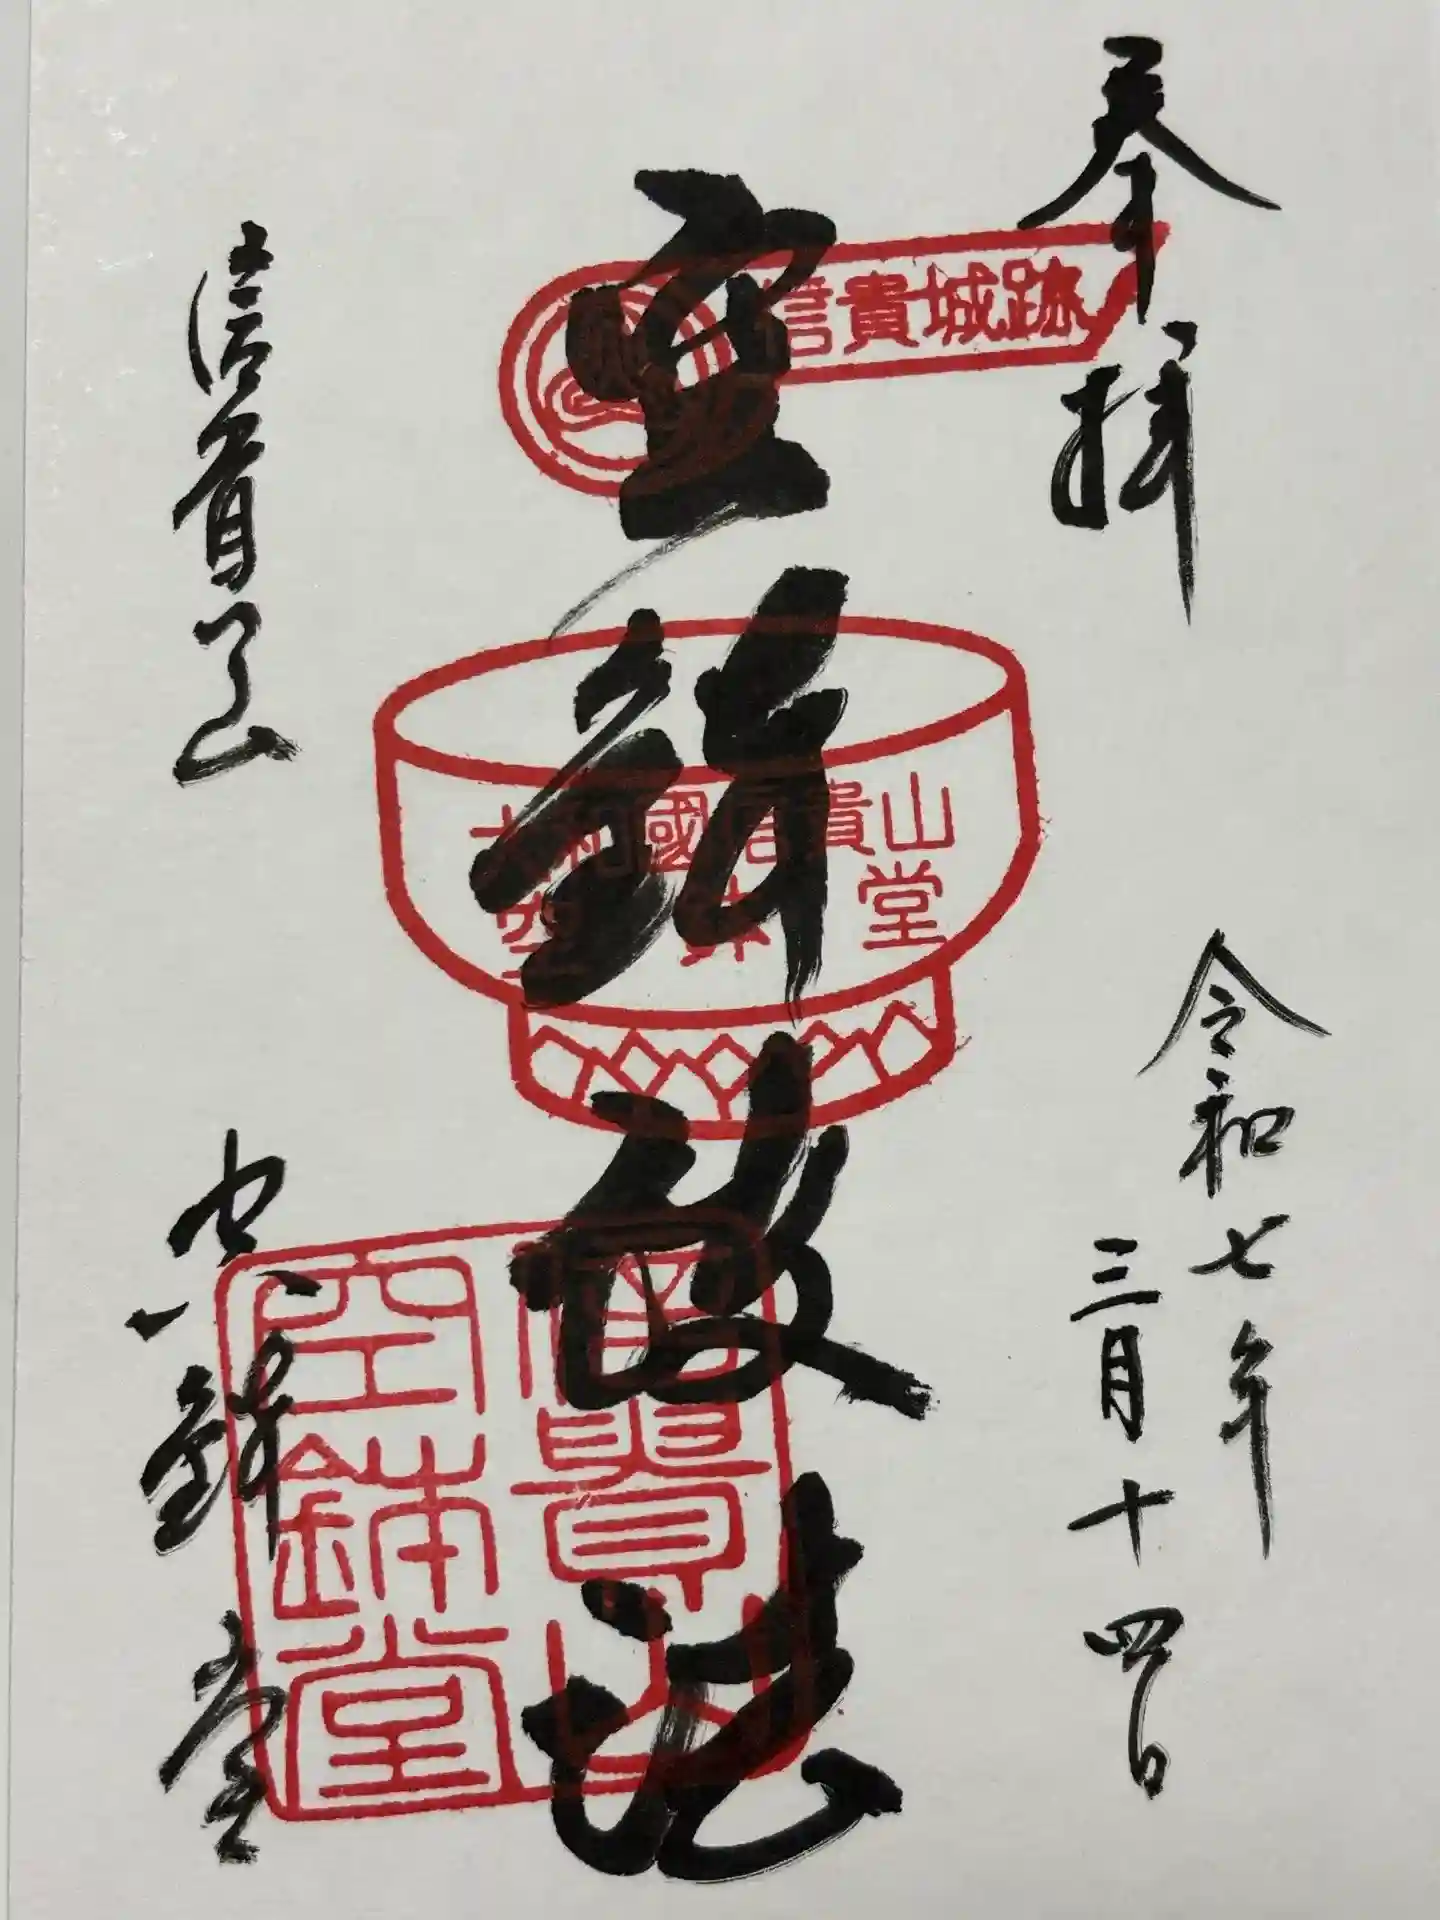 奉拝
令和七年
三月十四日
空鉢放法
信貴城跡
大和國信貴山
空鉢堂
信貴山
空鉢堂
信貴山
空鉢堂